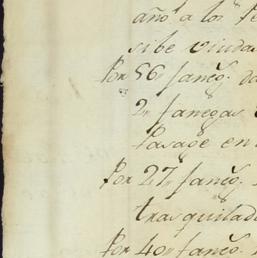 año a los Pe
sibe viudas
Por 56,, faneg.
2,, fanegas
Pasage en
Por 27,, faneg.
trasquilad
Por 40,, faneg.